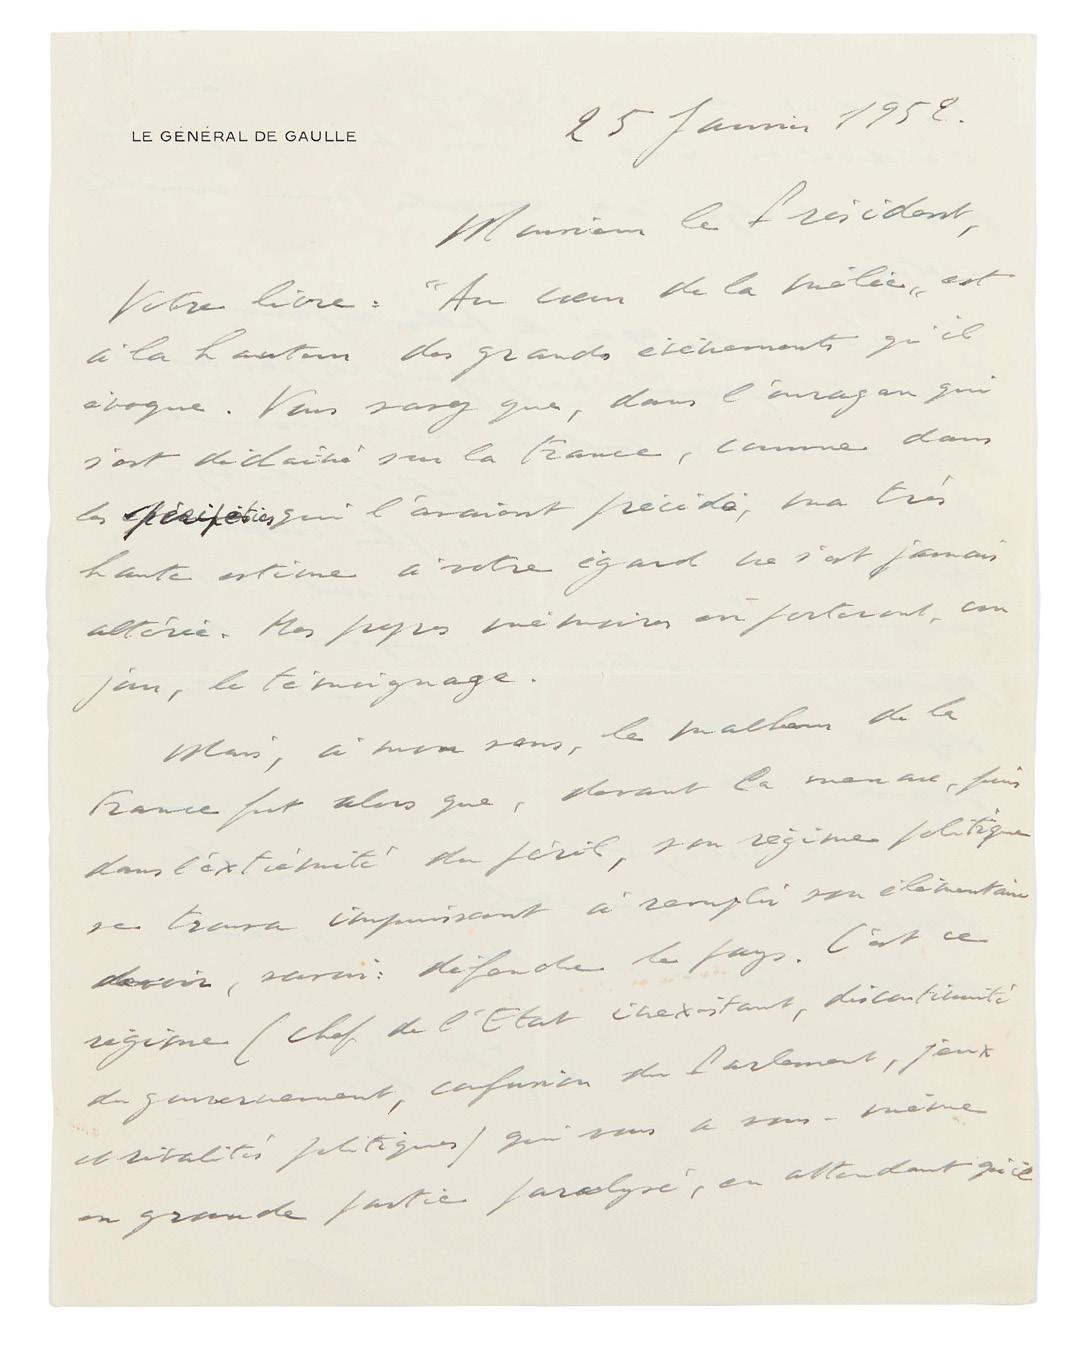 LE GÉNÉRAL DE GAULLE
25 Janvier 1952.
Monsieur le Président,
Votre livre : "Au cœur de la mêlée" est
à la hauteur des grands événements qu'il
évoque. Vous savez que, dans l'ouragan qui
s'est déchaîné sur la France, comme dans
les péripéties qui l'avaient précédé, ma très
haute estime à votre égard ne s'est jamais
altérée. Mes propres mémoires en porteront, un
jour, le témoignage.
Mais, à mon sens, le malheur de la
France fut alors que, devant la menace, puis
dans l'extrémité du péril, son régime politique
se trouva impuissant à remplir son élémentaire
devoir, savoir : défendre le pays. C'est ce
régime (chef de l'Etat inexistant, discontinuité
du gouvernement, confusion du Parlement, jeux
et rivalités politiques) qui vous a vous-même
en grande partie paralysé, en attendant qu'il